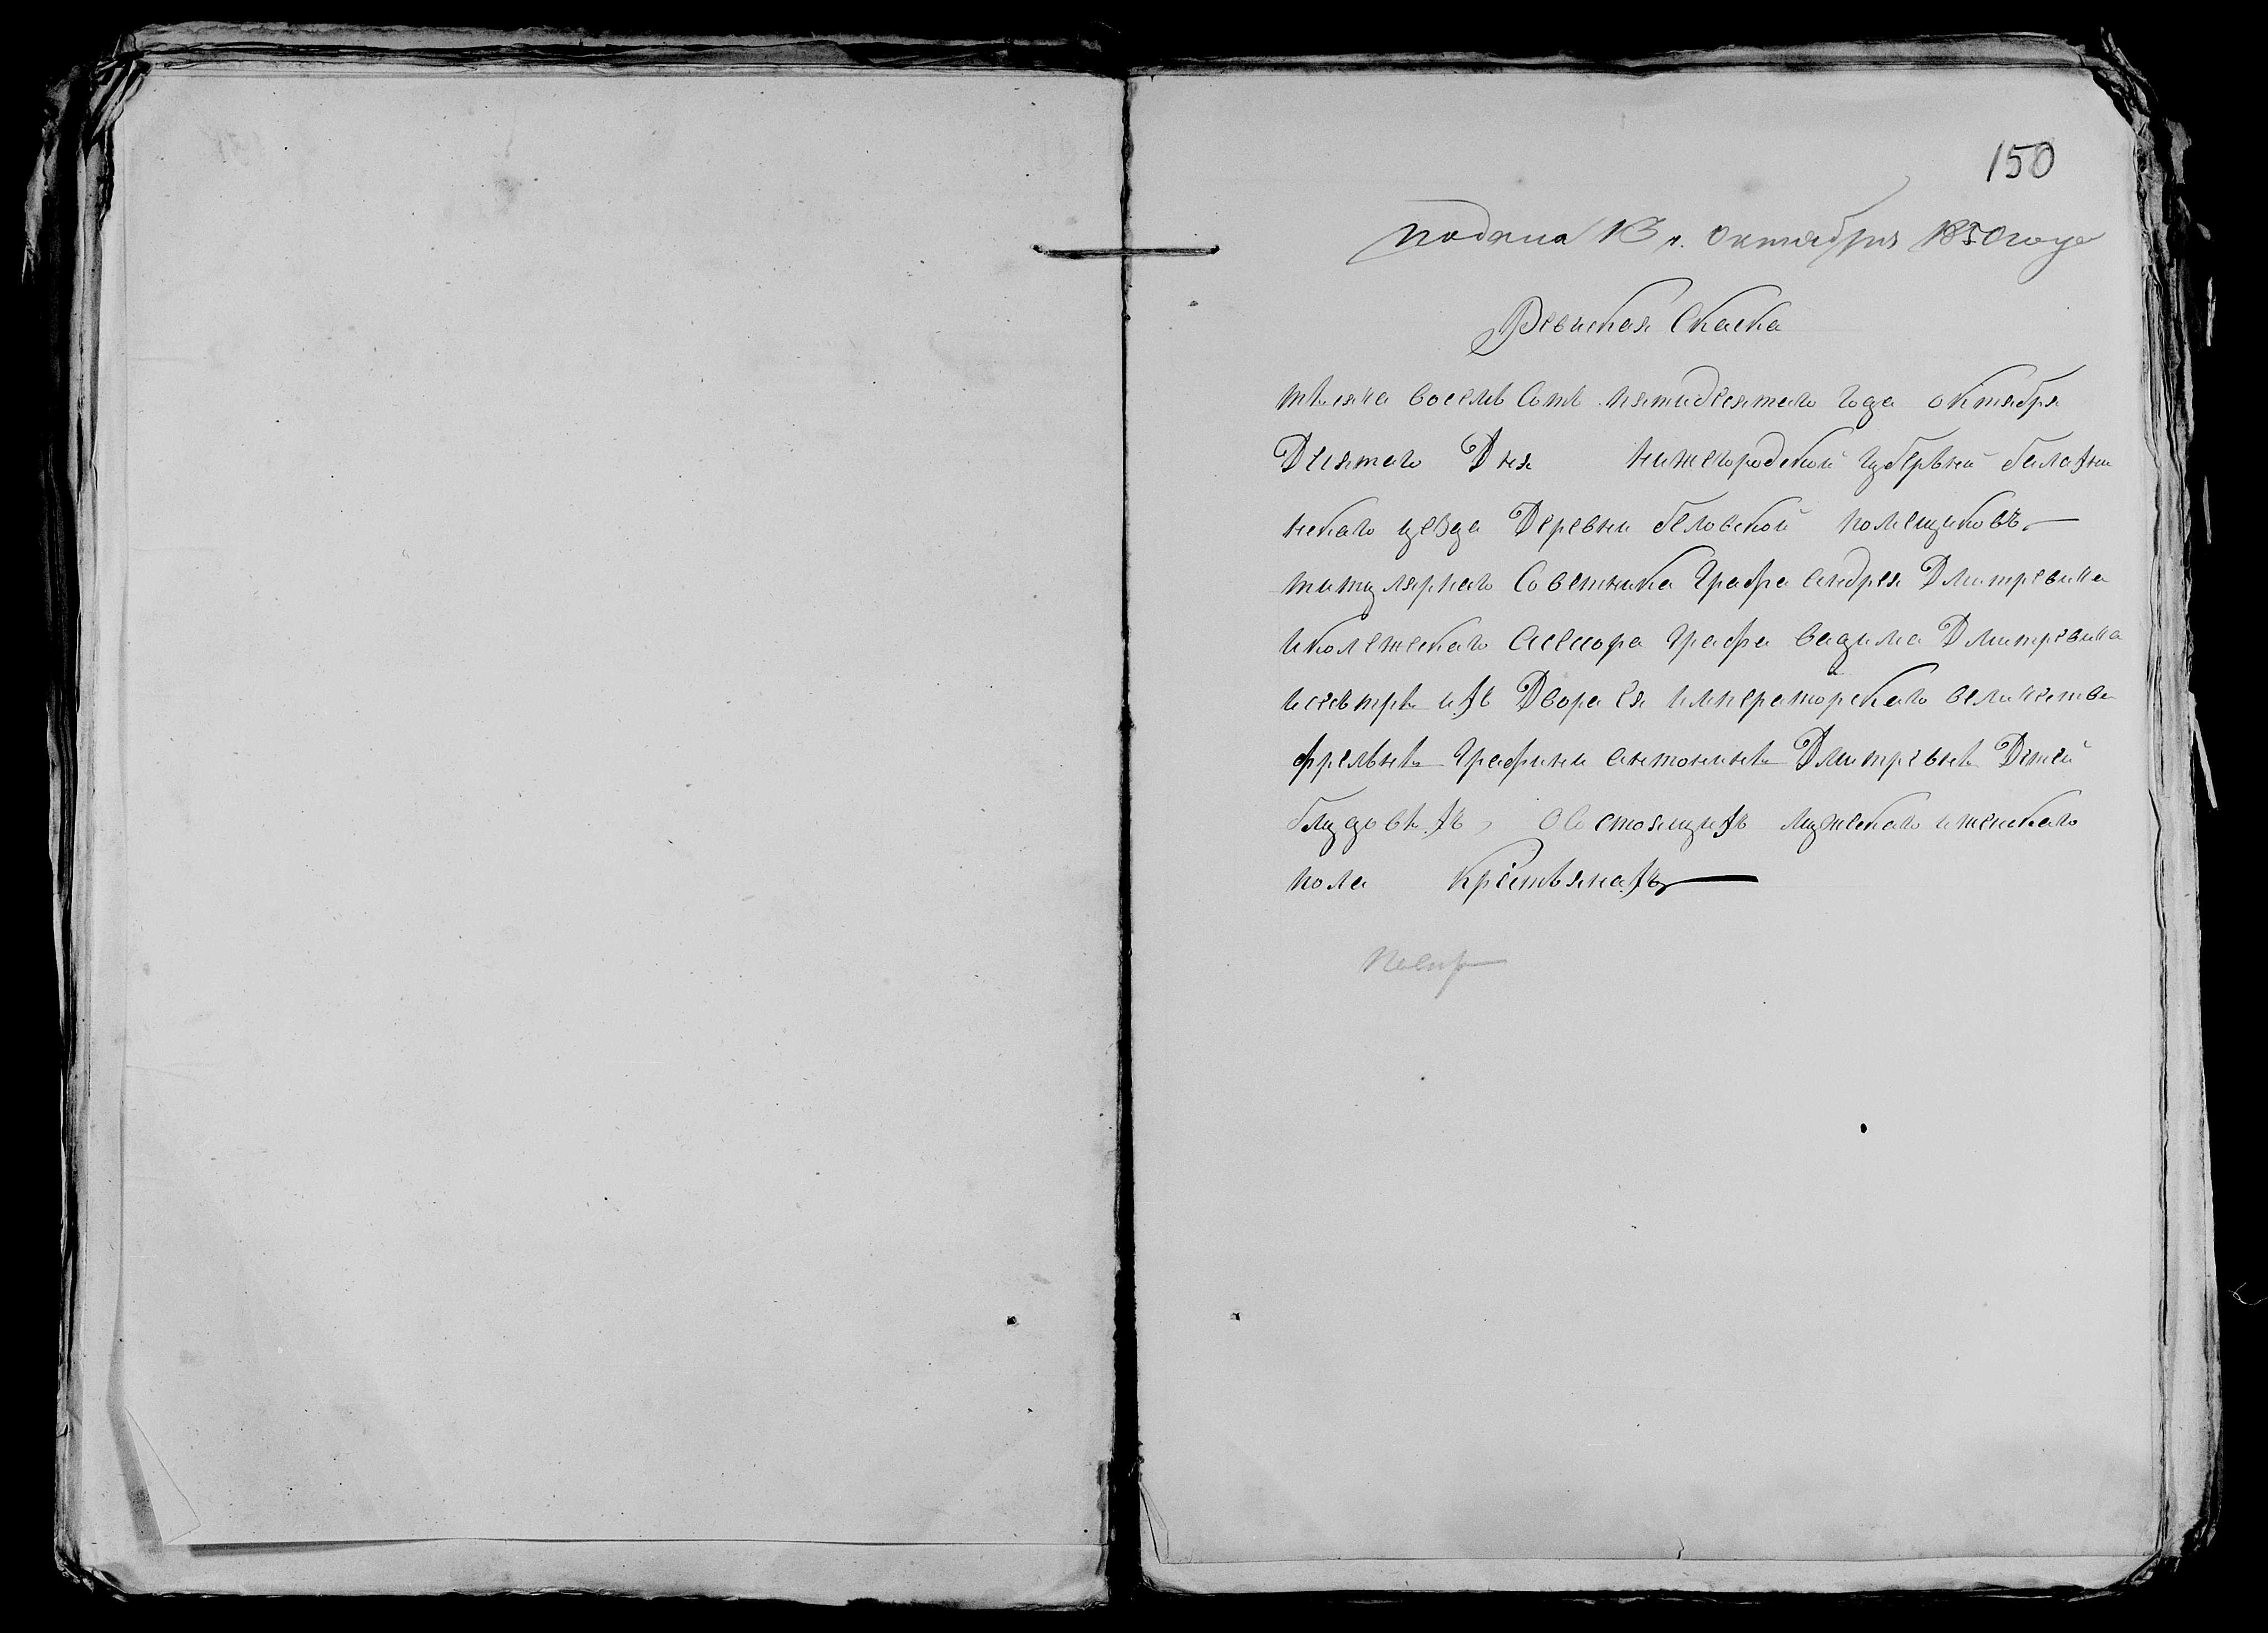 150
Подана 13 ч. Октября 1850 году
Ревиская Скаска
тысяча восемь Сотъ пятидесятаго года октября
Десятаго Дня нижегородской губерьнии балахни
нскаго уезда Деревни беловской помещиковъ
титулярнаго Советника Графа андрея Дмитревича
иколежскаго асесора графа вадима Дмитревича
исевтры изъ Двора Ея императорскаго величества
фрельны Графини антонины Дмитревны Детей
блудовыхъ, Осостоящихъ мужскаго иженскаго
пола Крестьянахъ